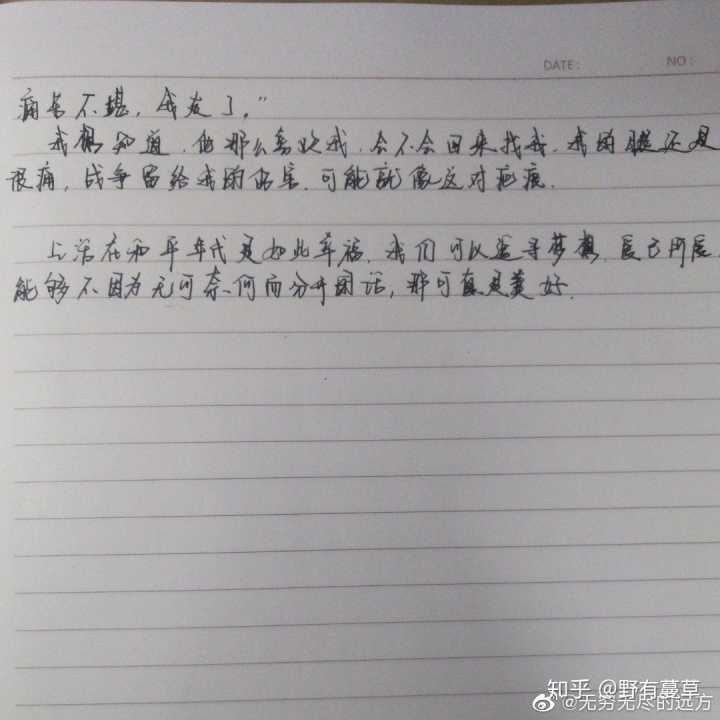 DATE: NO:
痛苦不堪，我发了。”
我想知道，他那么喜欢我，会不会回来找我，我的腿还是
很痛，战争留给我的伤害，可能就像这对疤痕.
生活在和平年代是如此幸福，我们可以追寻梦想，
能够不因为无可奈何而分开的话，那可真是美好.
知乎 @野有蔓草
@无穷无尽的远方